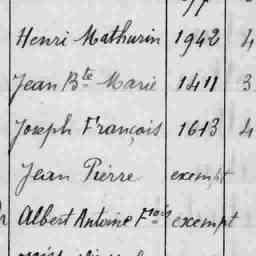 Henri Mathurin 1942 4
Jean Bte Marie 1411 3
Joseph François 1613 4
Jean Pierre exempt
Albert Antoine Fçois exempt